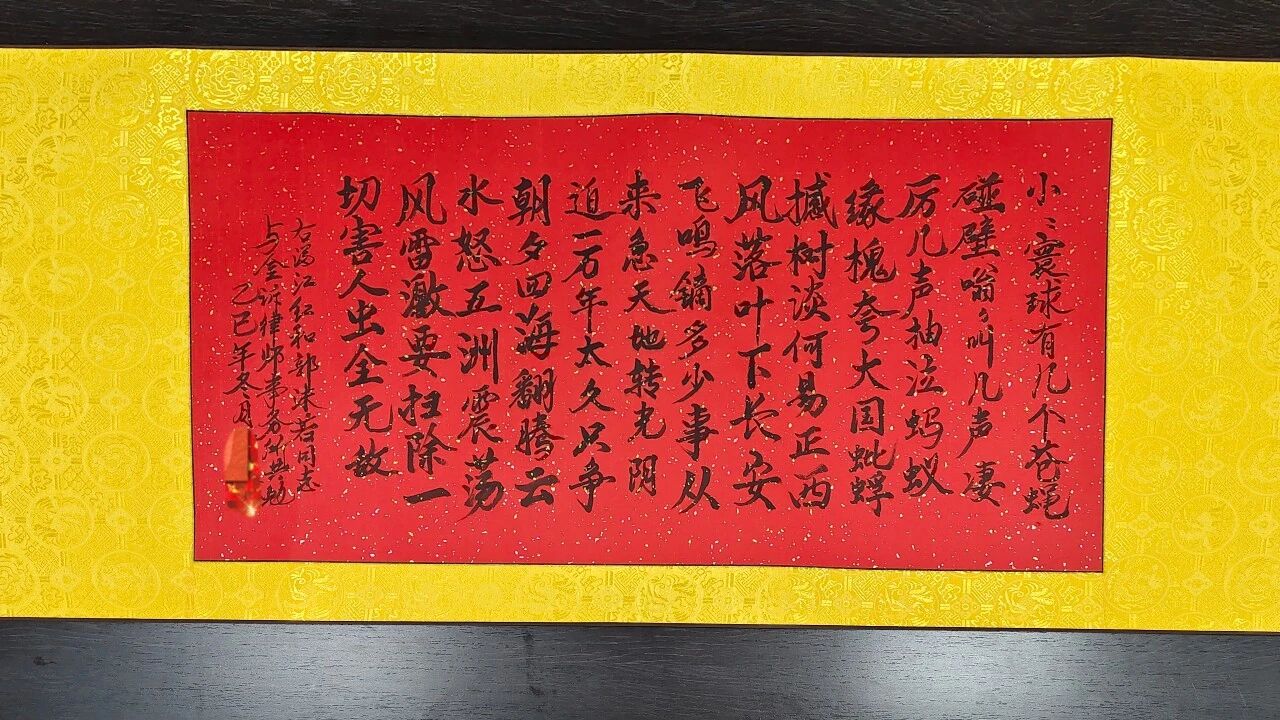 小〻寰球有几个苍蝇
碰壁嗡〻叫几声凄
厉几声抽泣蚂蚁
缘槐夸大国蚍蜉
撼树谈何易正西
风落叶下长安
飞鸣镝多少事从
来急天地转光阴
迫一万年太久只争
朝夕四海翻腾云
水怒五洲震荡
风雷激要扫除一
切害人虫全无敌
右满江红和郭沫若同志
与律师事务所共勉
乙巳年冬月